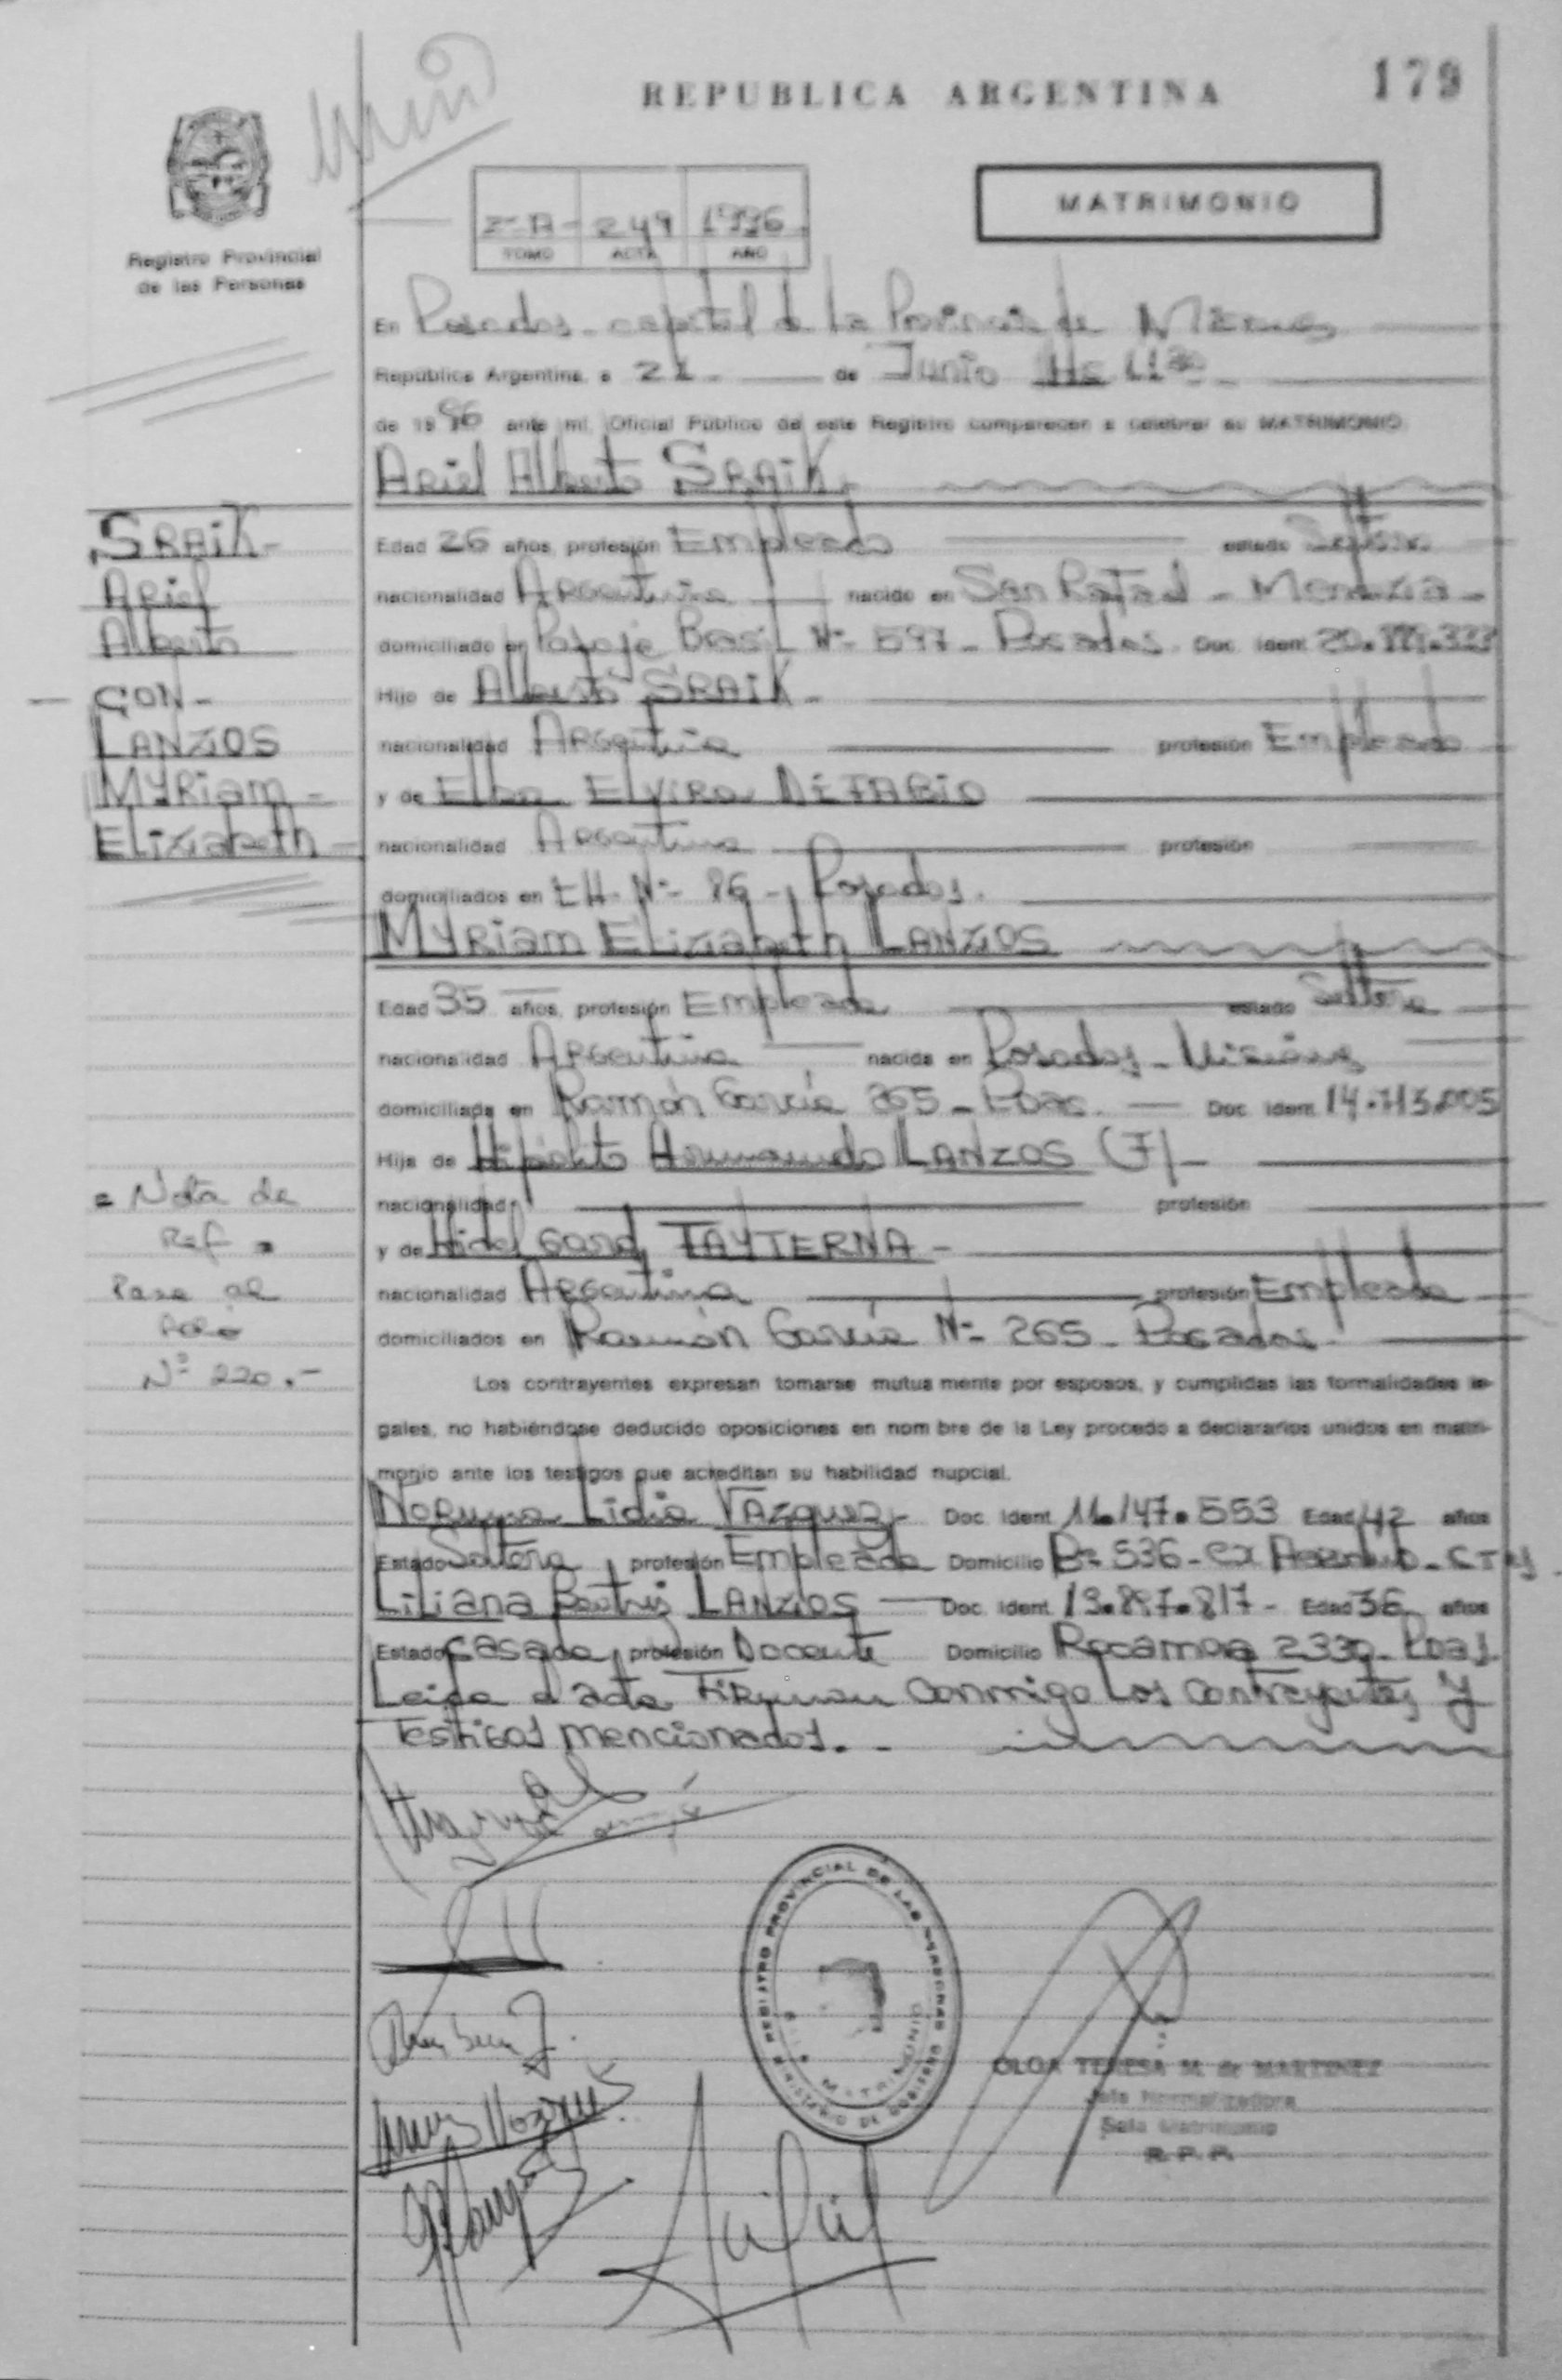 179
REPUBLICA ARGENTINA
MATRIMONIO
249 1996
TOMO ACTA AÑO
Registro Provincial
de las Personas
En Posadas - capital de la Provincia de Misiones
República Argentina, a 21 - de Junio Hs 11
de 1996 ante mí, Oficial Público de este Registro comparecen a celebrar su MATRIMONIO
Ariel Alberto SRAIK
SRAIK -
Ariel
Alberto
- CON -
LANZIOS
MYRiam -
Elizabeth -
Edad 26 años, profesión Empleado estado Soltero
nacionalidad Argentina nacido en San Rafael - Mendoza -
domiciliado en Pasaje Brasil Nº 597 - Posadas. Doc. Ident.
Hijo de Alberto SRAIK -
nacionalidad Argentina profesión Empleado
y de Elba Elvira DIFABIO
nacionalidad Argentina profesión
domiciliados en CH. Nº 86 -, Posadas.
MYRiam Elizabeth LANZIOS
Edad 35 años, profesión Empleada estado Soltera
nacionalidad Argentina nacida en Posadas - Misiones
domiciliada en Ramón García 265 - Pdas. Doc. Ident. 14.713.005
Hija de Hipólito Armando LANZOS (F) -
nacionalidad profesión
y de Hidel Gard TAYTERNA -
nacionalidad Argentina profesión Empleada
domiciliados en Ramón García Nº 265 - Posadas.
= Nota de
Ref =
Pase al
Folio
Nº 220.-
Los contrayentes expresan tomarse mutua mente por esposos, y cumplidas las formalidades le-
gales, no habiéndose deducido oposiciones en nom bre de la Ley procedo a declararlos unidos en matri-
monio ante los testigos que acreditan su habilidad nupcial.
Norma Lidia VAZQUEZ - Doc. Ident. 11.147.553 Edad 42 años
Estado Soltera, profesión Empleada Domicilio Bº 536 - ex
Liliana Beatriz LANZIOS - Doc. Ident. 13.897.817 - Edad 36 años
Estado casada, profesión Docente Domicilio Rocamora 2330 - Pdas.
Leida el acta Firman conmigo los contrayentes y
Testigos mencionados. -
REGISTRO PROVINCIAL DE LAS PERSONAS
MATRIMONIO
MINISTERIO DE GOBIERNO
OLGA TERESA M. de MARTINEZ
Jefa Normalizadora
Sala Matrimonio
R. P. P.